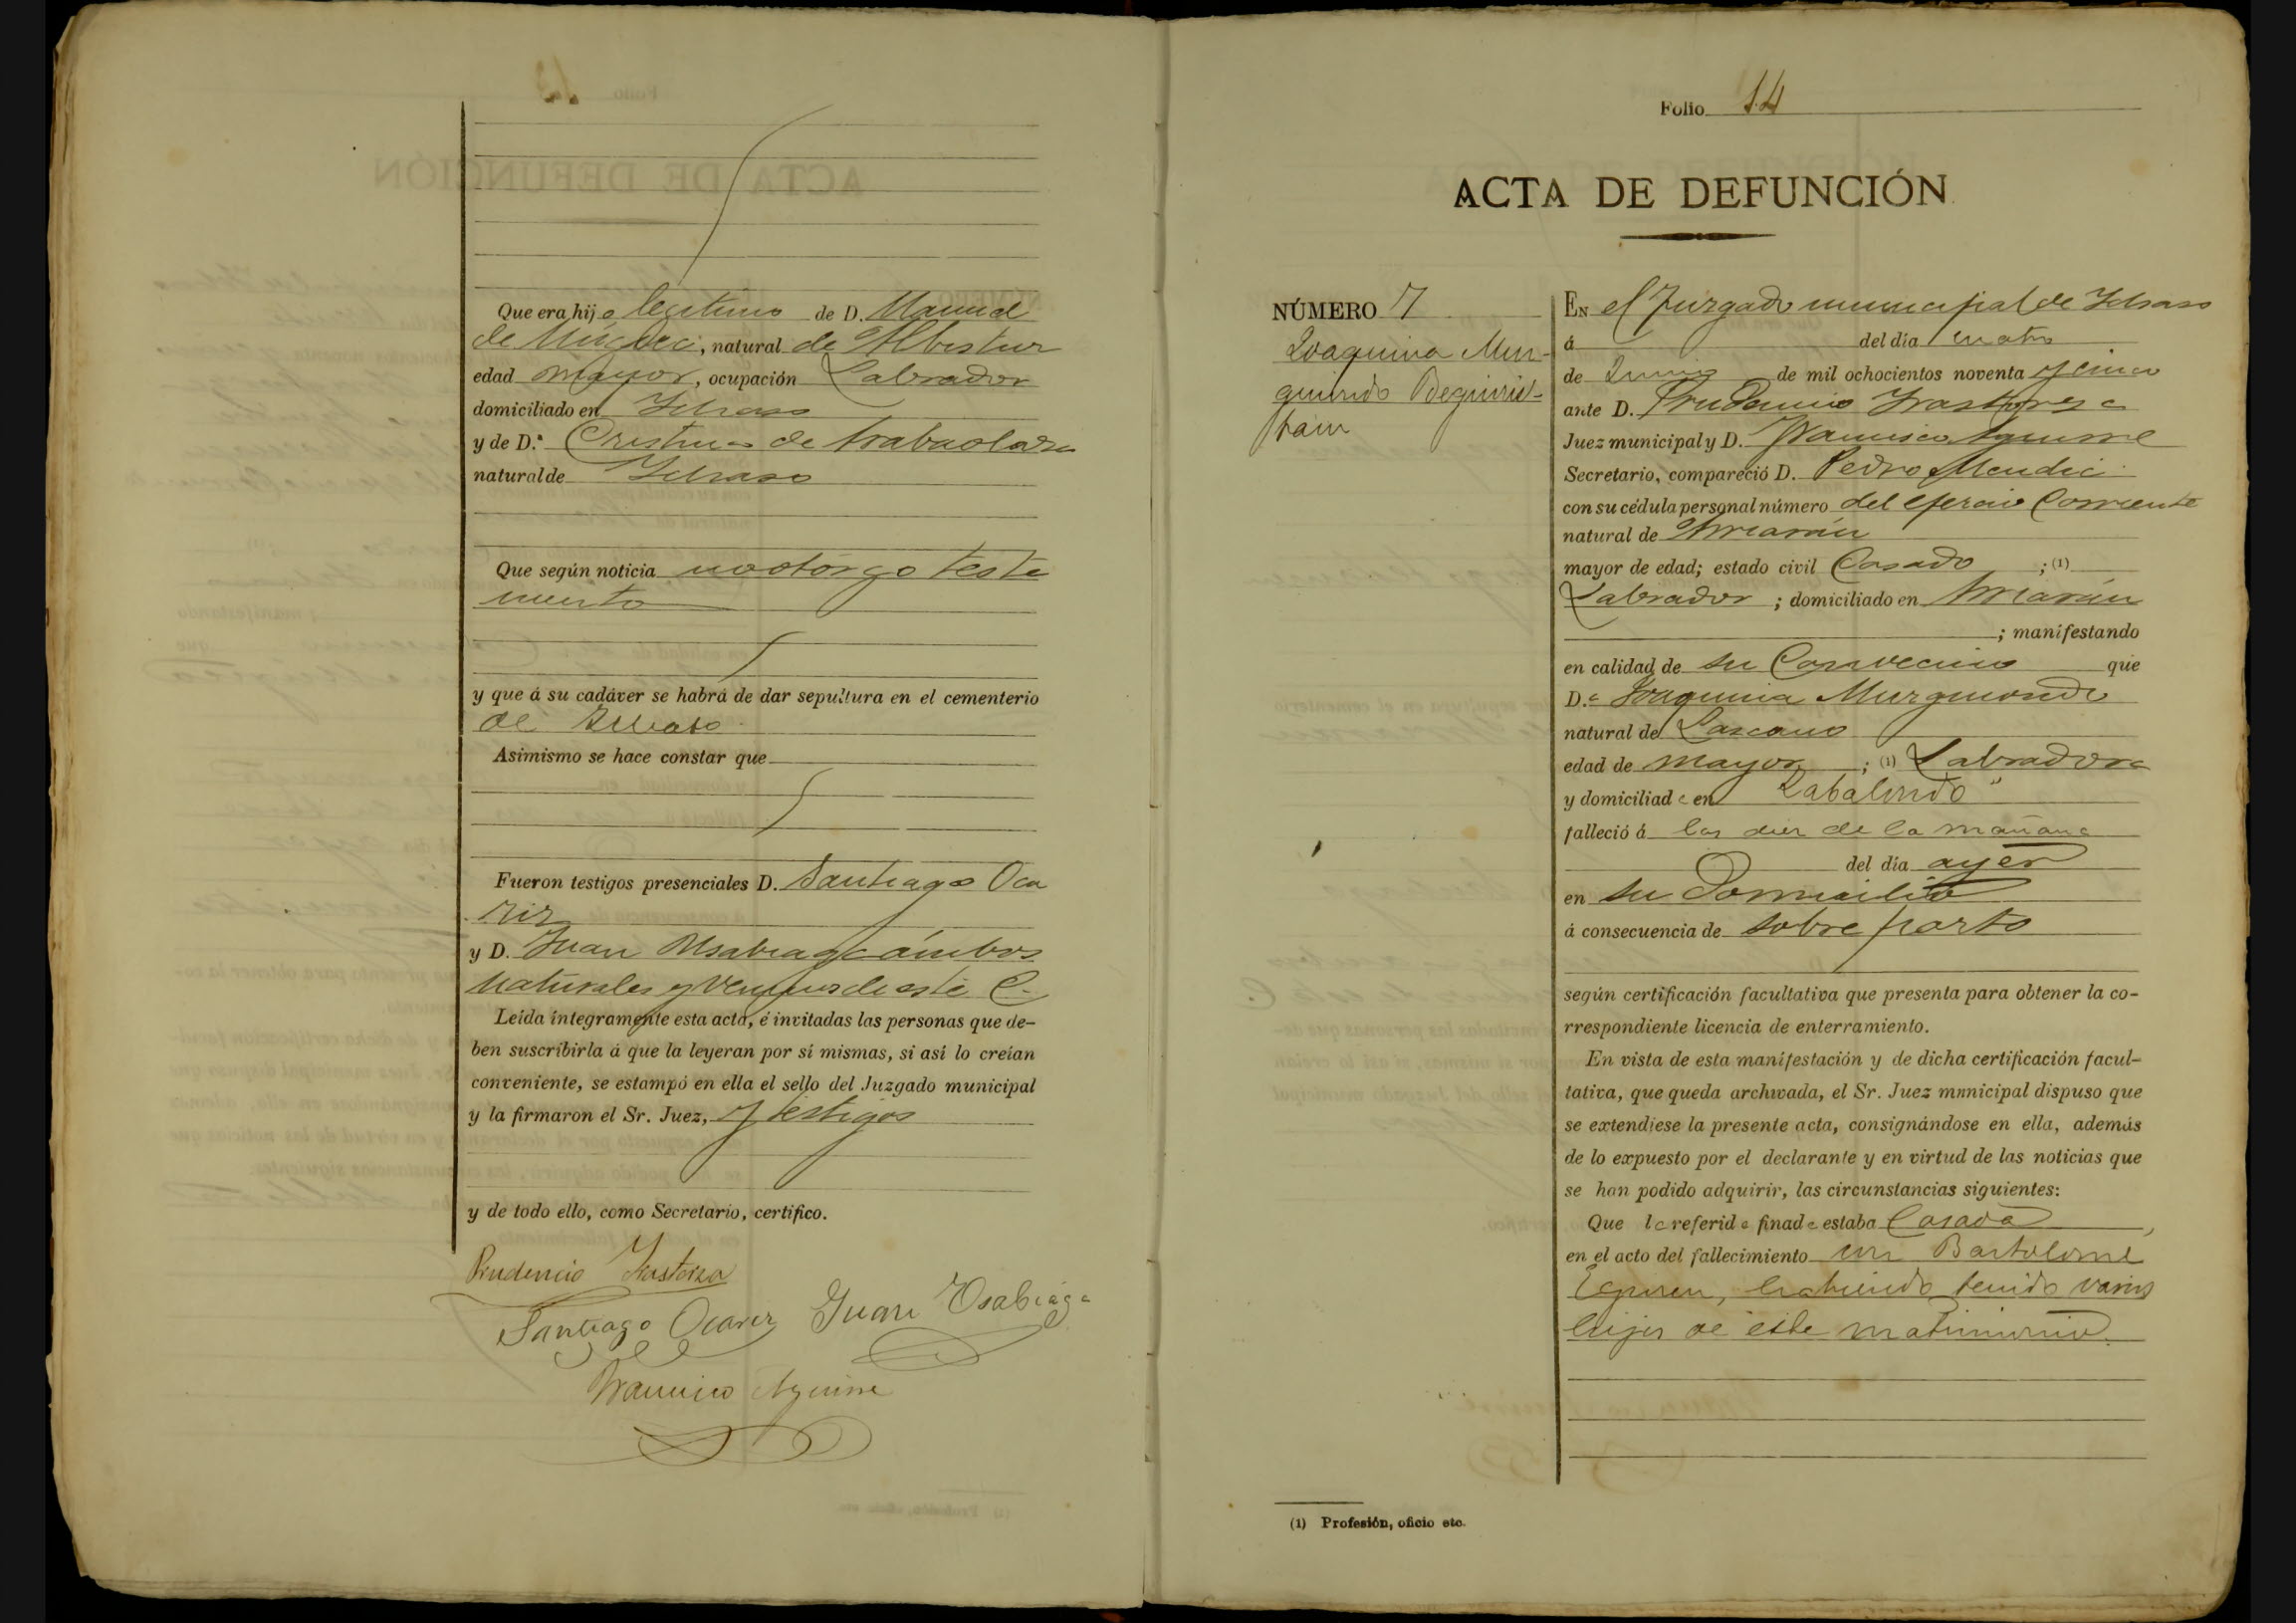 Que era hijo legitimo de D. Manuel
de, natural de Albistur
edad mayor, ocupación Labrador
domiciliado en Ichaso
y de D.ª Cristina de
natural de Ichaso
Que según noticia no otorgo testa
mento
y que á su cadáver se habrá de dar sepultura en el cementerio
de Ichaso
Asimismo se hace constar que
Fueron testigos presenciales D. Santiago Oca
riz
y D. Juan Usabiaga ámbos
naturales y vecinos de este C.
Leída íntegramente esta acta, é invitadas las personas que de-
ben suscribirla á que la leyeran por sí mismas, si así lo creían
conveniente, se estampó en ella el sello del Juzgado municipal
y la firmaron el Sr. Juez, y testigos
y de todo ello, como Secretario, certifico.
Prudencio Irastorza
Santiago Ocariz Juan Usabiaga
Francisco Aguirre
Folio 14
ACTA DE DEFUNCIÓN
NÚMERO 7
Joaquina Mur-
guiondo Beguiris-
tain
En el Juzgado municipal de Ichaso
á del día cuatro
de Junio de mil ochocientos noventa y cinco
ante D. Prudencio Irastorza
Juez municipal y D. Francisco Aguirre
Secretario, compareció D. Pedro Mendic
con su cédula personal número del ejercio Corriente
natural de Arriarán
mayor de edad; estado civil Casado ; (1)
Labrador ; domiciliado en Arriarán
; manifestando
en calidad de su Convecino que
D.ª Joaquina Murguiondo
natural de Lazcano
edad de mayor ; (1) Labradora
y domiciliada en
falleció á las diez de la mañana
del día ayer
en su Domicilio
á consecuencia de sobre parto
según certificación facultativa que presenta para obtener la co-
rrespondiente licencia de enterramiento.
En vista de esta manifestación y de dicha certificación facul-
tativa, que queda archivada, el Sr. Juez municipal dispuso que
se extendiese la presente acta, consignándose en ella, además
de lo expuesto por el declarante y en virtud de las noticias que
se han podido adquirir, las circunstancias siguientes:
Que la referida finada estaba Casada,
en el acto del fallecimiento con Bartolomé
Eguren, habiendo tenido varios
hijos de este matrimonio.
(1) Profesión, oficio etc.